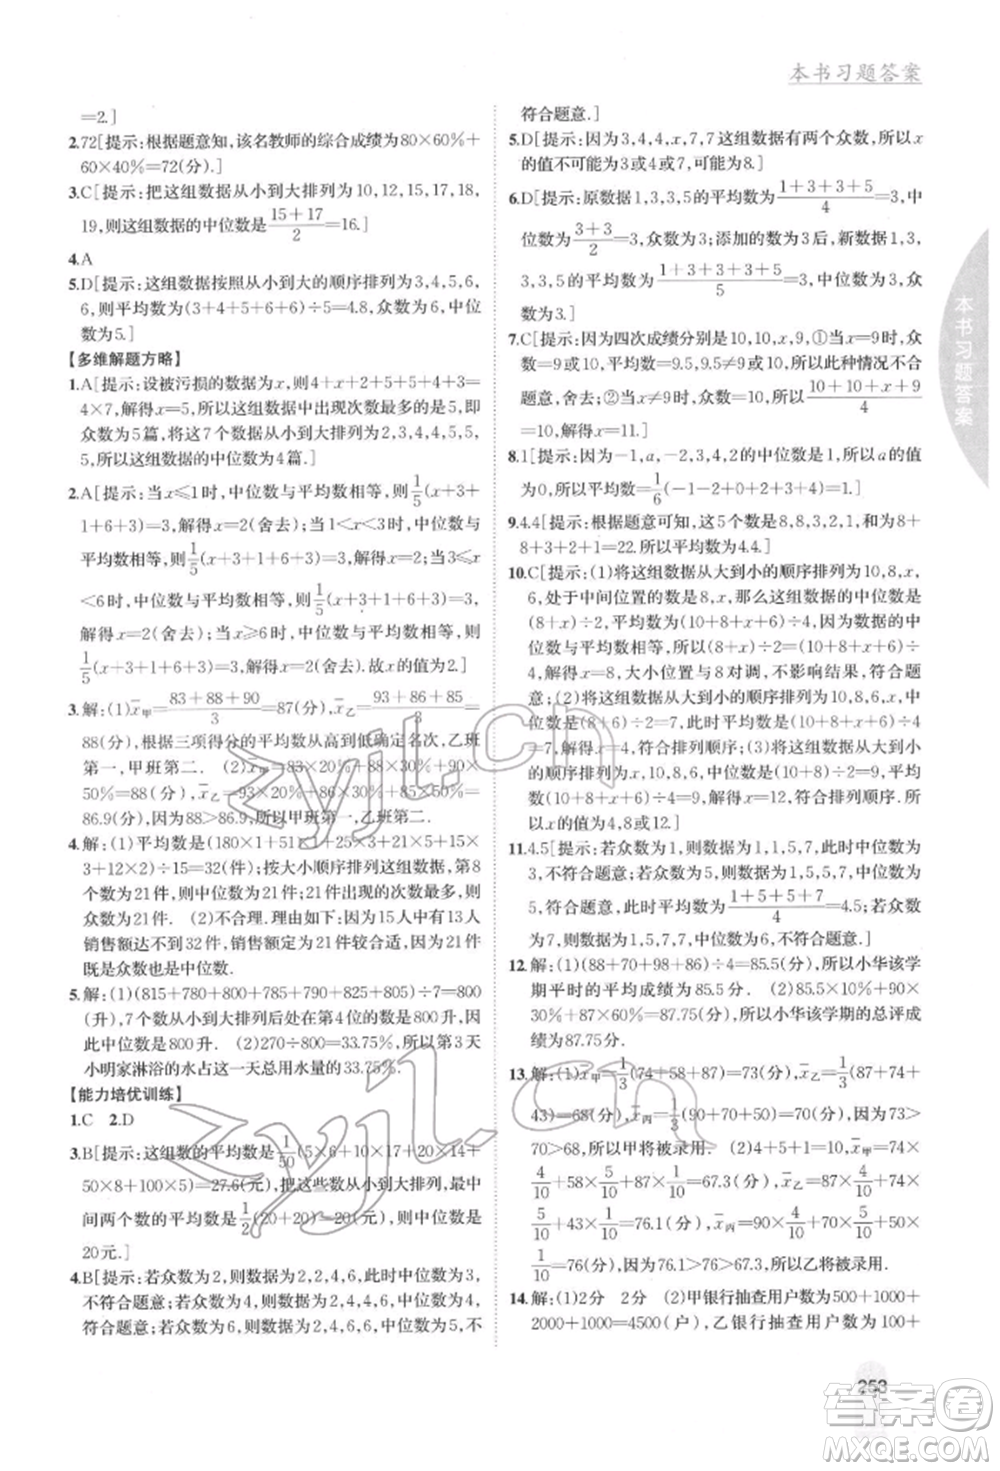 本书习题答案
=2.]
2.72[提示:根据题意知,该名教师的综合成绩为80×60%+
60×40%=72(分).]
3.C[提示:把这组数据从小到大排列为10,12,15,17,18,
19,则这组数据的中位数是\frac{15+17}{2}=16.]
4.A
5.D[提示:这组数据按照从小到大的顺序排列为3,4,5,6,
6,则平均数为(3+4+5+6+6)÷5=4.8,众数为6,中位
数为5.]
【多维解题方略】
1.A[提示:设被污损的数据为x,则4+x+2+5+5+4+3=
4×7,解得x=5,所以这组数据中出现次数最多的是5,即
众数为5篇,将这7个数据从小到大排列为2,3,4,4,5,5,
5,所以这组数据的中位数为4篇.]
2.A[提示:当x≤1时,中位数与平均数相等,则\frac{1}{5}(x+3+
1+6+3)=3,解得x=2(舍去);当1<x<3时,中位数与
平均数相等,则\frac{1}{5}(x+3+1+6+3)=3,解得x=2;当3≤x
<6时,中位数与平均数相等,则\frac{1}{5}(x+3+1+6+3)=3,
解得x=2(舍去);当x≥6时,中位数与平均数相等,则
\frac{1}{5}(x+3+1+6+3)=3,解得x=2(舍去).故x的值为2.]
3.解:(1)x̄甲=\frac{83+88+90}{3}=87(分),x̄乙=\frac{93+86+85}{3}=
88(分),根据三项得分的平均数从高到低确定名次,乙班
第一,甲班第二. (2)x̄甲=83×20%+88×30%+90×
50%=88(分),x̄乙=93×20%+86×30%+85×50%=
86.9(分),因为88>86.9,所以甲班第一,乙班第二.
4.解:(1)平均数为(180×1+51×1+27×1+21×5+15×
3+12×2)÷15=32(件);按大小顺序排列这组数据,第8
个数据为21件,则中位数为21件;出现的次数最多的是21件,则
众数为21件. (2)不合理.理由如下:因为15人中有13人
销售额达不到32件,销售额定为21件较合适,因为21件
既是众数也是中位数.
5.解:(1)(815+780+800+785+790+825+805)÷7=800
(升),7个数从小到大排列后处在第4位的数是800,因此中位
数是800升. (2)270÷800=33.75%,所以第3天
小明家淋浴的水占这一天总用水量的33.75%.
【能力培优训练】
1.C 2.D
3.B[提示:这组数的平均数是\frac{1}{50}(5×6+10×17+20×14+
50×8+100×5)=27.6(元),把这些数从小到大排列,最中
间两个数的平均数是\frac{1}{2}(20+20)=20(元),则中位数是
20元.]
4.B[提示:若众数为2,则数据为2,2,4,6,此时中位数为3,
不符合题意;若众数为4,则数据为2,4,4,6,中位数为4,
符合题意;若众数为6,则数据为2,4,6,6,中位数为5,不
符合题意.]
5.D[提示:因为3,4,4,x,7,7这组数据有两个众数,所以x
的值不可能为3或4或7,可能为8.]
6.D[提示:原数据1,3,3,5的平均数为\frac{1+3+3+5}{4}=3,中
位数为\frac{3+3}{2}=3,众数为3;添加的数为3后,新数据1,3,
3,3,5的平均数为\frac{1+3+3+3+5}{5}=3,中位数为3,众
数为3.]
7.C[提示:因为四次成绩分别是10,10,x,9,①当x=9时,众
数是10和9,平均数是9.5,9.5≠9或10,所以此种情况不合
题意,舍去;②当x≠9时,众数是10,则\frac{10+10+x+9}{4}
=10,解得x=11.]
8.1[提示:因为-1,a,-2,3,4,2的中位数为1,所以a的值
为0,则平均数为\frac{1}{6}(-1-2+0+2+3+4)=1.]
9.4.4[提示:根据题意可知,这5个数是8,8,3,2,1,和为8+
8+3+2+1=22.所以平均数为4.4.]
10.C[提示:(1)将这组数据从大到小的顺序排列为10,8,x,
6,处于中间位置的数是8,x,那么这组数据的中位数是
(8+x)÷2,平均数为(10+8+x+6)÷4,所以(8+x)÷
2=(10+8+x+6)÷4,
解得x=8,大小位置与8对调,不影响结果,符合题
意;(2)将这组数据从大到小的顺序排列为10,8,6,x,中
位数是(8+6)÷2=7,此时平均数是(10+8+x+6)÷4
=7,解得x=4,符合排列顺序;(3)将这组数据从大到小
的顺序排列为x,10,8,6,中位数是(10+8)÷2=9,平均
数为(10+8+x+6)÷4=9,解得x=12,符合排列顺序.所
以x的值为4,8或12.]
11.4.5[提示:若众数为1,则数据为1,1,5,7,此时中位数为
3,不符合题意;若众数为5,则数据为1,5,5,7,中位数为
5,符合题意,此时平均数为\frac{1+5+5+7}{4}=4.5;若众数
为7,则数据为1,5,7,7,中位数为6,不符合题意.]
12.解:(1)(88+70+98+86)÷4=85.5(分),所以小华该学
期平时的平均成绩为85.5分. (2)85.5×10%+90×
30%+87×60%=87.75(分),所以小华该学期的总评成
绩为87.75分.
13.解:(1)x̄甲=\frac{1}{3}(74+58+87)=73(分),x̄乙=\frac{1}{3}(87+74+
43)=68(分),x̄丙=\frac{1}{3}(90+70+50)=70(分),因为73>
70>68,所以甲将被录用. (2)因为x̄甲=74×
\frac{4}{10}+58×\frac{5}{10}+87×\frac{1}{10}=67.3(分),x̄乙=87×\frac{4}{10}+74×
\frac{5}{10}+43×\frac{1}{10}=76.1(分),x̄丙=90×\frac{4}{10}+70×\frac{5}{10}+50×
\frac{1}{10}=76(分),因为76.1>76>67.3,所以乙将被录用.
14.解:(1)2分 2分 (2)甲银行抽查用户数为500+1000+
2000+1000=4500(户),乙银行抽查用户数为100+
本书习题答案
253
zyjl.cn
zyjl.cn
答案圈
MXQE.COM